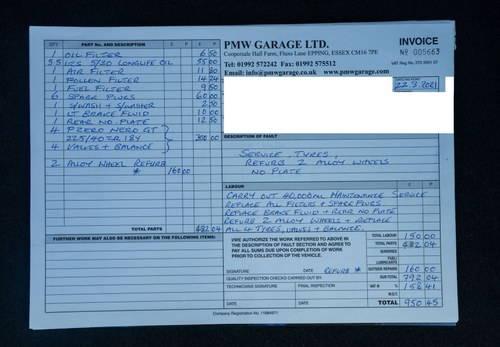 QTY PART No. AND DESCRIPTION £ P £ P
1 OIL FILTER 6 50
5.5 LTS 5/30 LONGLIFE OIL 55 00
1 AIR FILTER 11 80
1 POLLEN FILTER 14 24
1 FUEL FILTER 9 50
6 SPARK PLUGS 60 00
1 S/WASH + S/WASHER 2 50
1 LT BRAKE FLUID 10 00
1 REAR NO PLATE 12 50
4 P ZERO NERO GT
225/40ZR 18Y 300 00
4 VALVES + BALANCE
2 ALLOY WHEEL REFURB
* 160 00
TOTAL PARTS 482 04
FURTHER WORK MAY ALSO BE NECESSARY ON THE FOLLOWING ITEMS:
PMW GARAGE LTD.
Coopersale Hall Farm, Fluxs Lane EPPING, ESSEX CM16 7PE
Tel: 01992 572242 Fax: 01992 575512
Email: info@pmwgarage.co.uk www.pmwgarage.co.uk
INVOICE
No 005663
22.3.2021
DESCRIPTION OF FAULT
SERVICE, TYRES,
REFURB 2 ALLOY WHEELS
NO PLATE
LABOUR £ P
CARRY OUT 40,000 ML MAINTENANCE SERVICE
REPLACE ALL FILTERS + SPARK PLUGS
REPLACE BRAKE FLUID + REAR NO PLATE
REFURB 2 ALLOY WHEELS + REPLACE
ALL 4 TYRES, VALVES + BALANCE.
I/WE AUTHORISE THE WORK REFERRED TO ABOVE IN
THE DESCRIPTION OF FAULT SECTION AND AGREE TO
PAY ALL SUMS DUE UPON COMPLETION OF WORK
PRIOR TO COLLECTION OF THE VEHICLE.
TOTAL LABOUR 150 00
TOTAL PARTS 482 04
SUNDRIES
FUEL/
LUBRICANTS
SIGNATURE DATE REFURB * OUTSIDE REPAIR 160 00
QUALITY INSPECTION CHECKS CARRIED OUT BY: SUB TOTAL 792 04
TECHNICIANS SIGNATURE FINAL INSPECTION VAT @ % 158 41
M.O.T.
DATE DATE TOTAL 950 45
Company Registration No 11884971